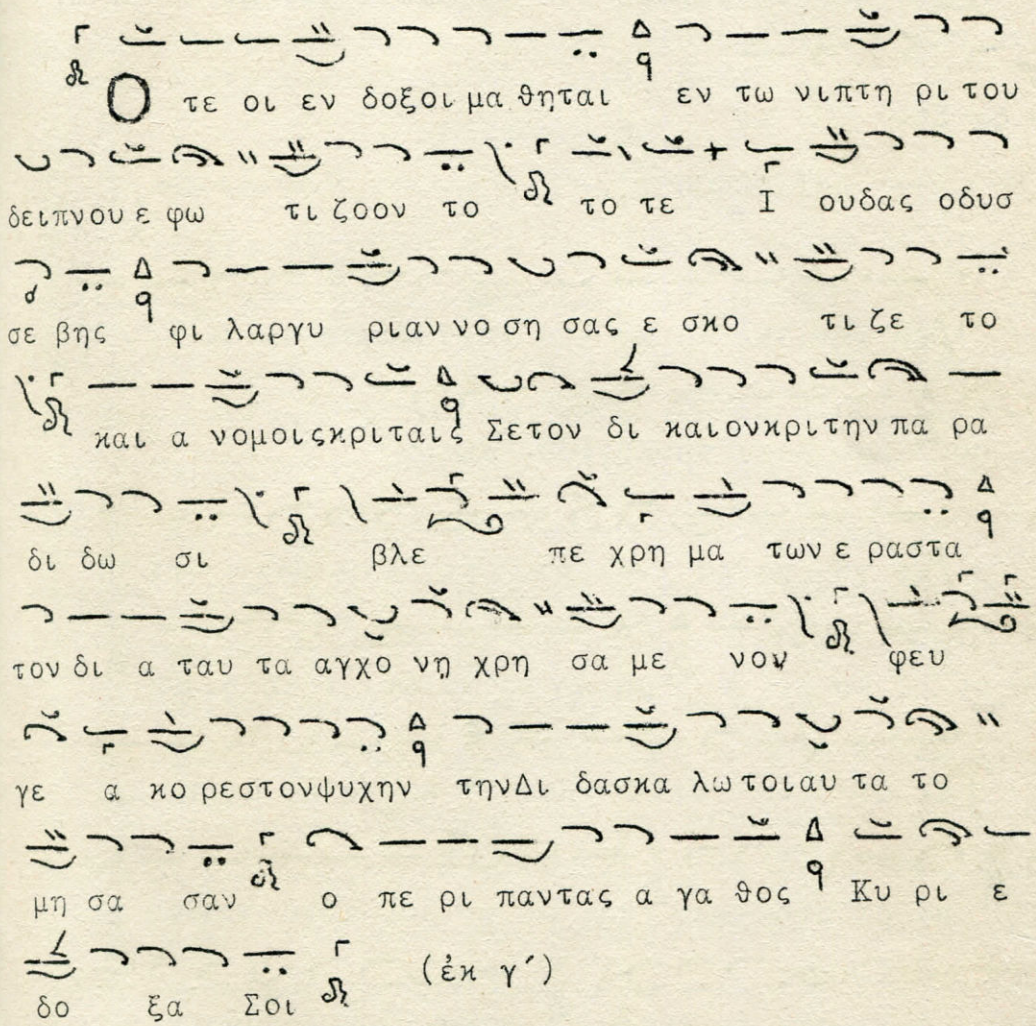 Ο τε οι εν δοξοι μα θηται εν τω νιπτη ρι του
δειπνου ε φω τι ζοον το το τε Ι ουδας οδυσ
σε βης φι λαργυ ριαν νο ση σας ε σκο τι ζε το
και α νομοιςκριταις Σετον δι καιονκριτην πα ρα
δι δω σι βλε πε χρη μα των ε ραστα
τον δι α ταυ τα αγχο νῃ χρη σα με νον φευ
γε α κο ρεστονψυχην τηνΔι δασκα λω τοιαυ τα το
μη σα σαν ο πε ρι παντας α γα θος Κυ ρι ε
δο ξα Σοι (ἐκ γ′)